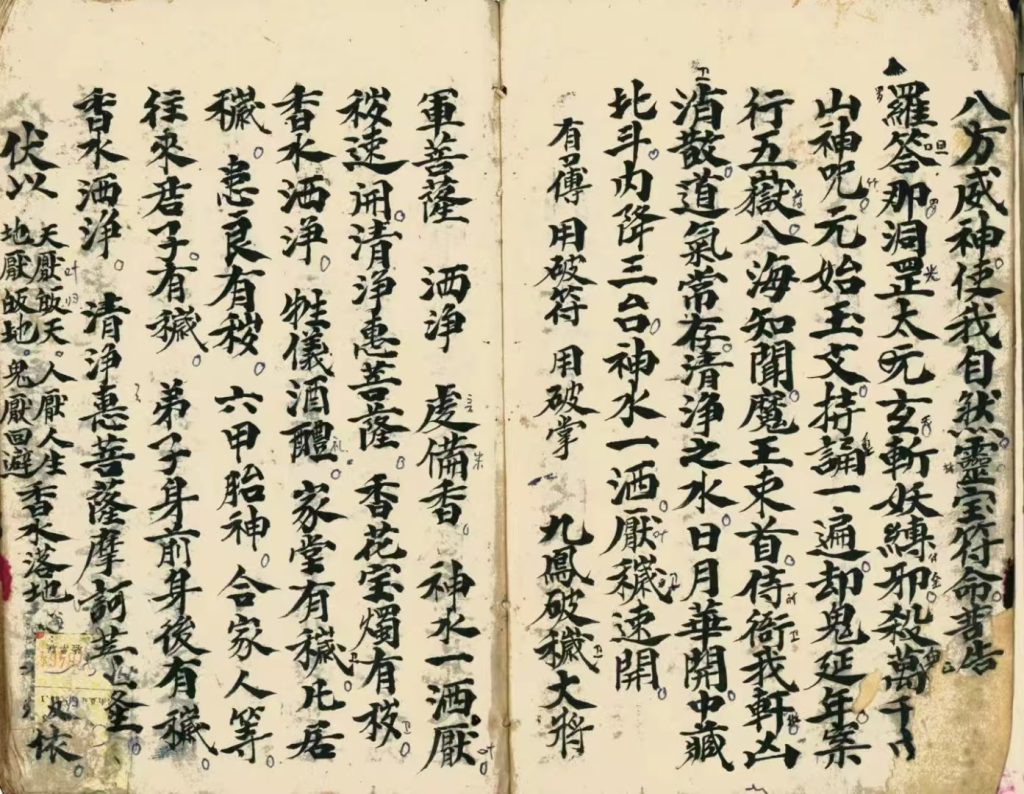 八方威神使我自然靈宝符命普告
羅答那洞罡太元玄斬妖縛邪殺萬千
山神呪元始玉文持誦一遍却鬼延年案
行五嶽八海知聞魔王束首侍衛我軒凶
消散道氣常存清净之水日月華開中藏
北斗内降三台神水一洒厭穢速開
有傳 用破符 用破掌 九鳳破穢大将
軍菩薩 洒净 虔備香 神水一洒厭
秽速開清净惠菩薩 香花宝燭有秽
香水洒净 牲儀酒醴 家堂有穢凡居
穢 患良有秽 六甲胎神 合家人等
往來君子有穢 弟子身前身後有穢
香水洒净 清净惠菩薩摩訶菩薩
伏以 天厭皈天 人厭人生 香水落地
地厭皈地 鬼厭回避 依